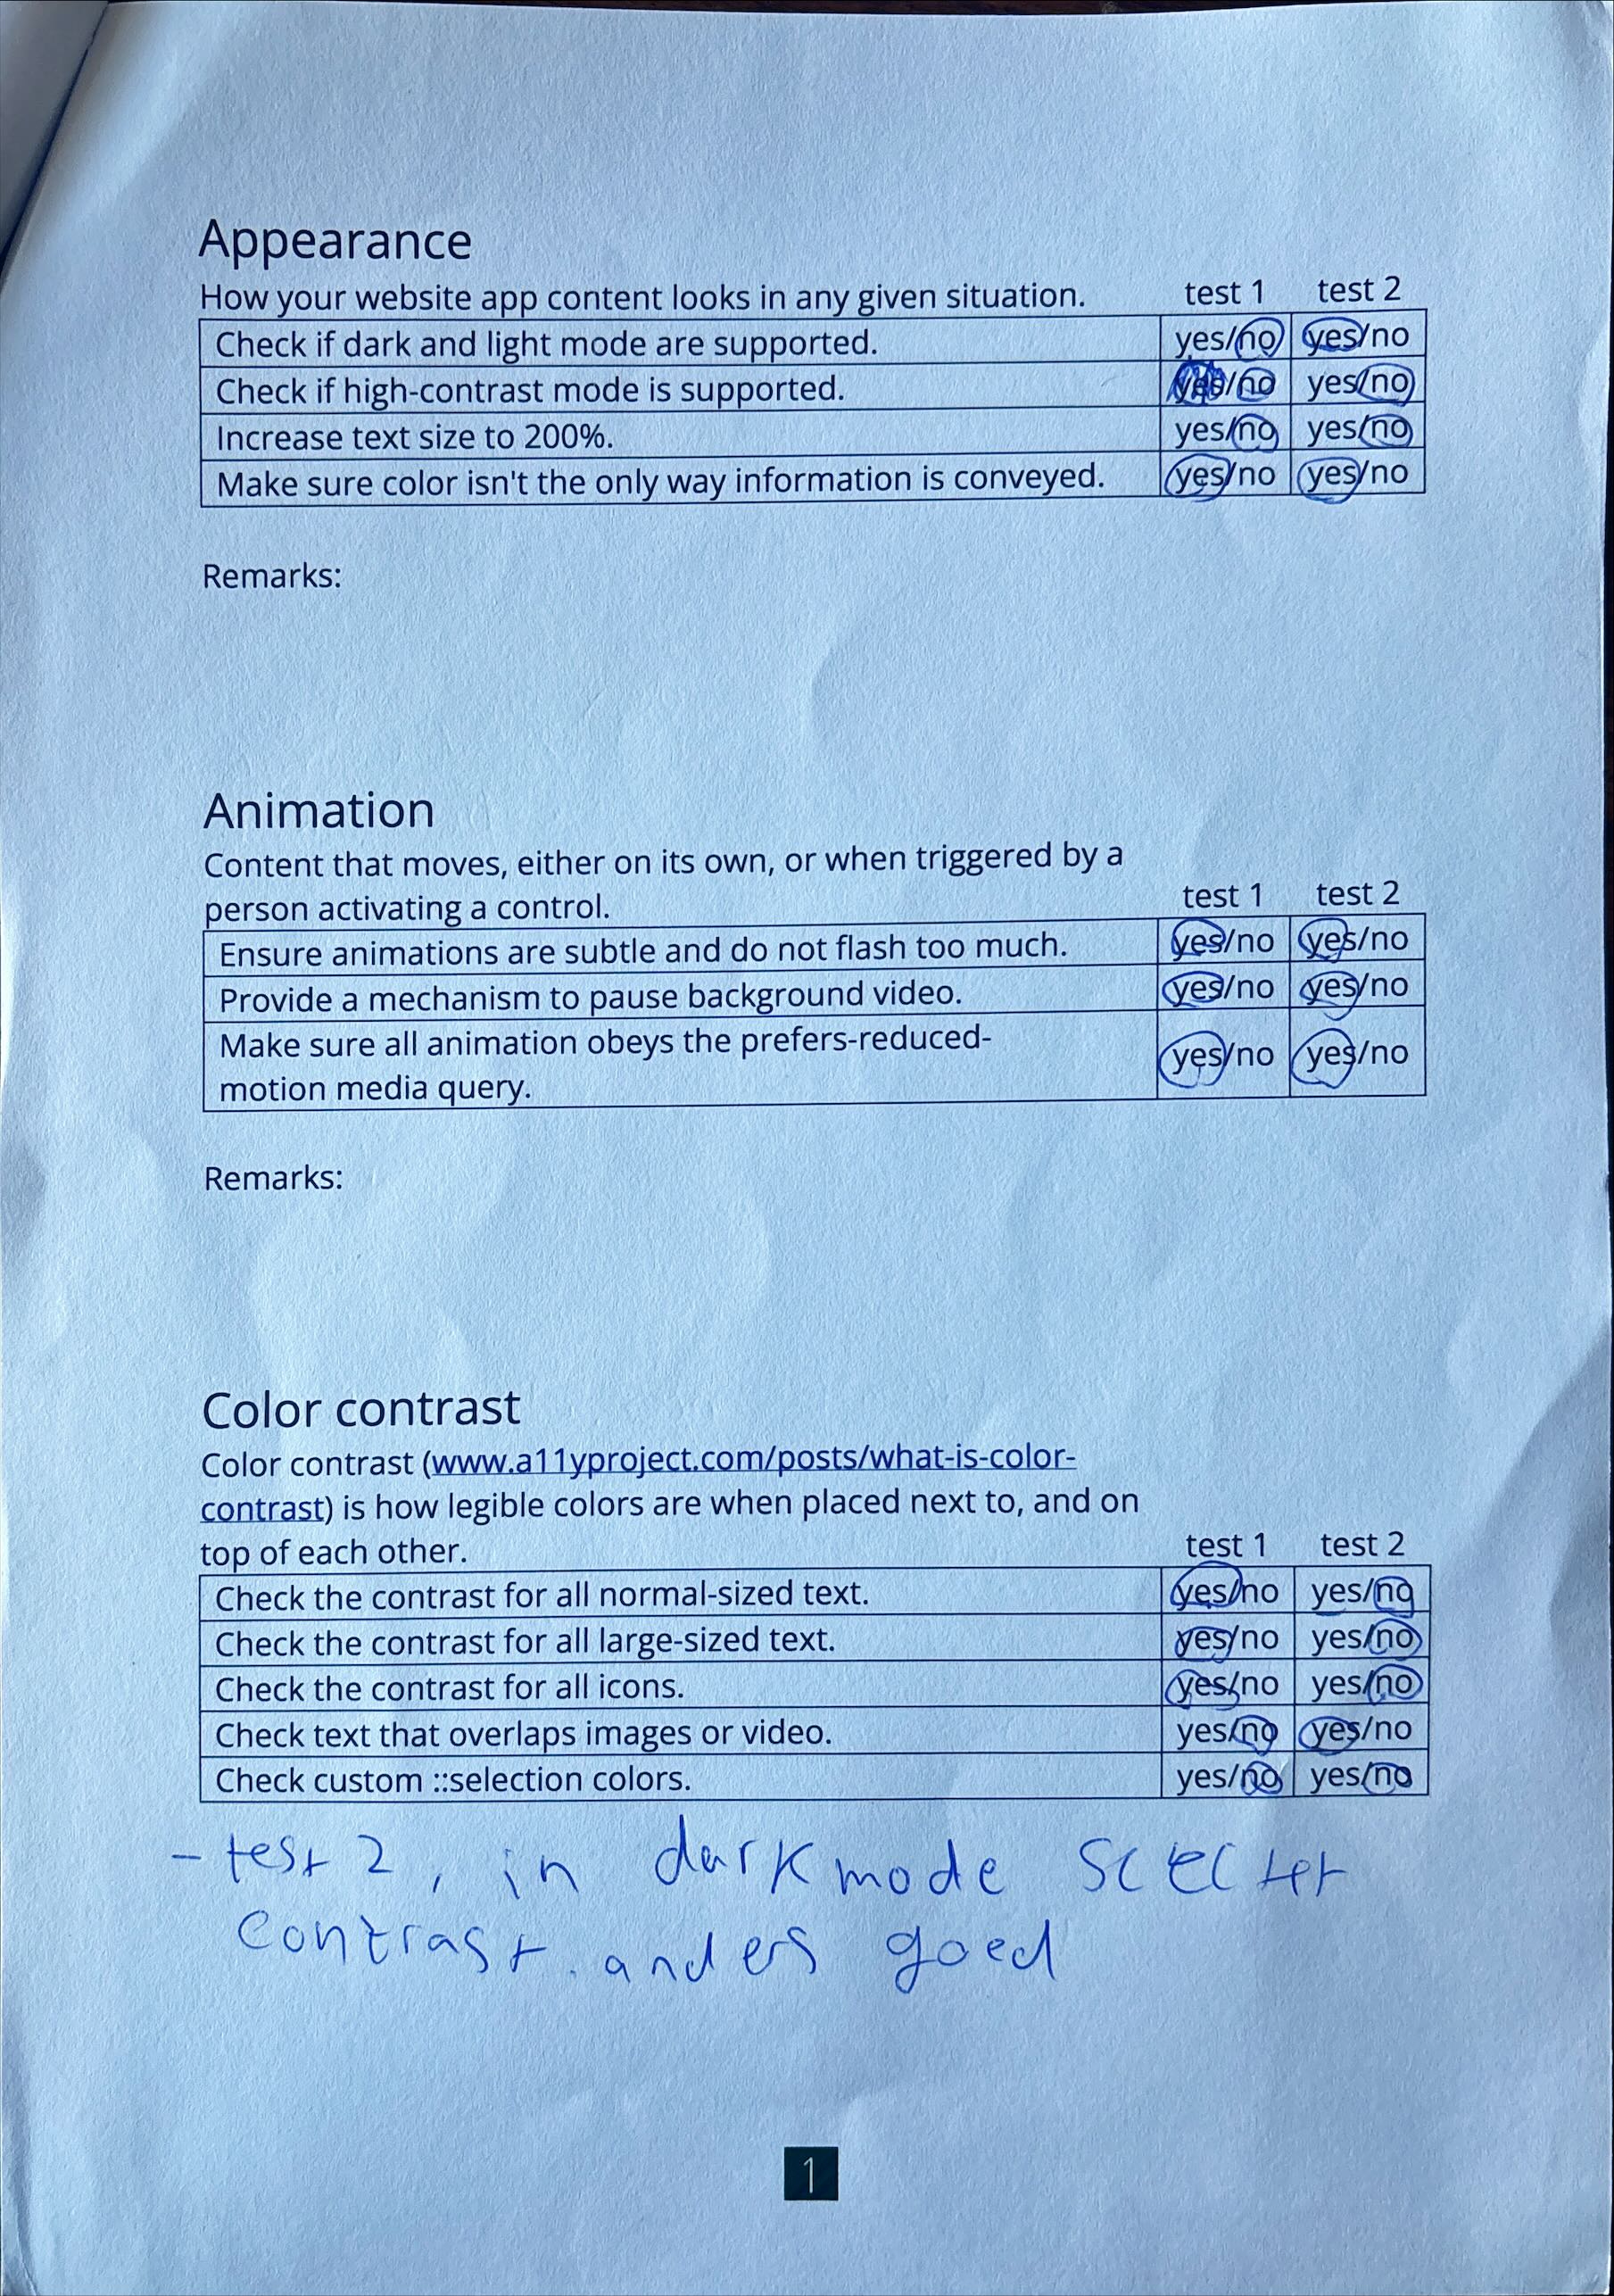 Appearance
How your website app content looks in any given situation. test 1 test 2
Check if dark and light mode are supported. yes/no yes/no
Check if high-contrast mode is supported. yes/no yes/no
Increase text size to 200%. yes/no yes/no
Make sure color isn't the only way information is conveyed. yes/no yes/no
Remarks:
Animation
Content that moves, either on its own, or when triggered by a
person activating a control. test 1 test 2
Ensure animations are subtle and do not flash too much. yes/no yes/no
Provide a mechanism to pause background video. yes/no yes/no
Make sure all animation obeys the prefers-reduced-
motion media query. yes/no yes/no
Remarks:
Color contrast
Color contrast (www.a11yproject.com/posts/what-is-color-
contrast) is how legible colors are when placed next to, and on
top of each other. test 1 test 2
Check the contrast for all normal-sized text. yes/no yes/no
Check the contrast for all large-sized text. yes/no yes/no
Check the contrast for all icons. yes/no yes/no
Check text that overlaps images or video. yes/no yes/no
Check custom ::selection colors. yes/no yes/no
- test 2, in darkmode
contrast. anders goed
1